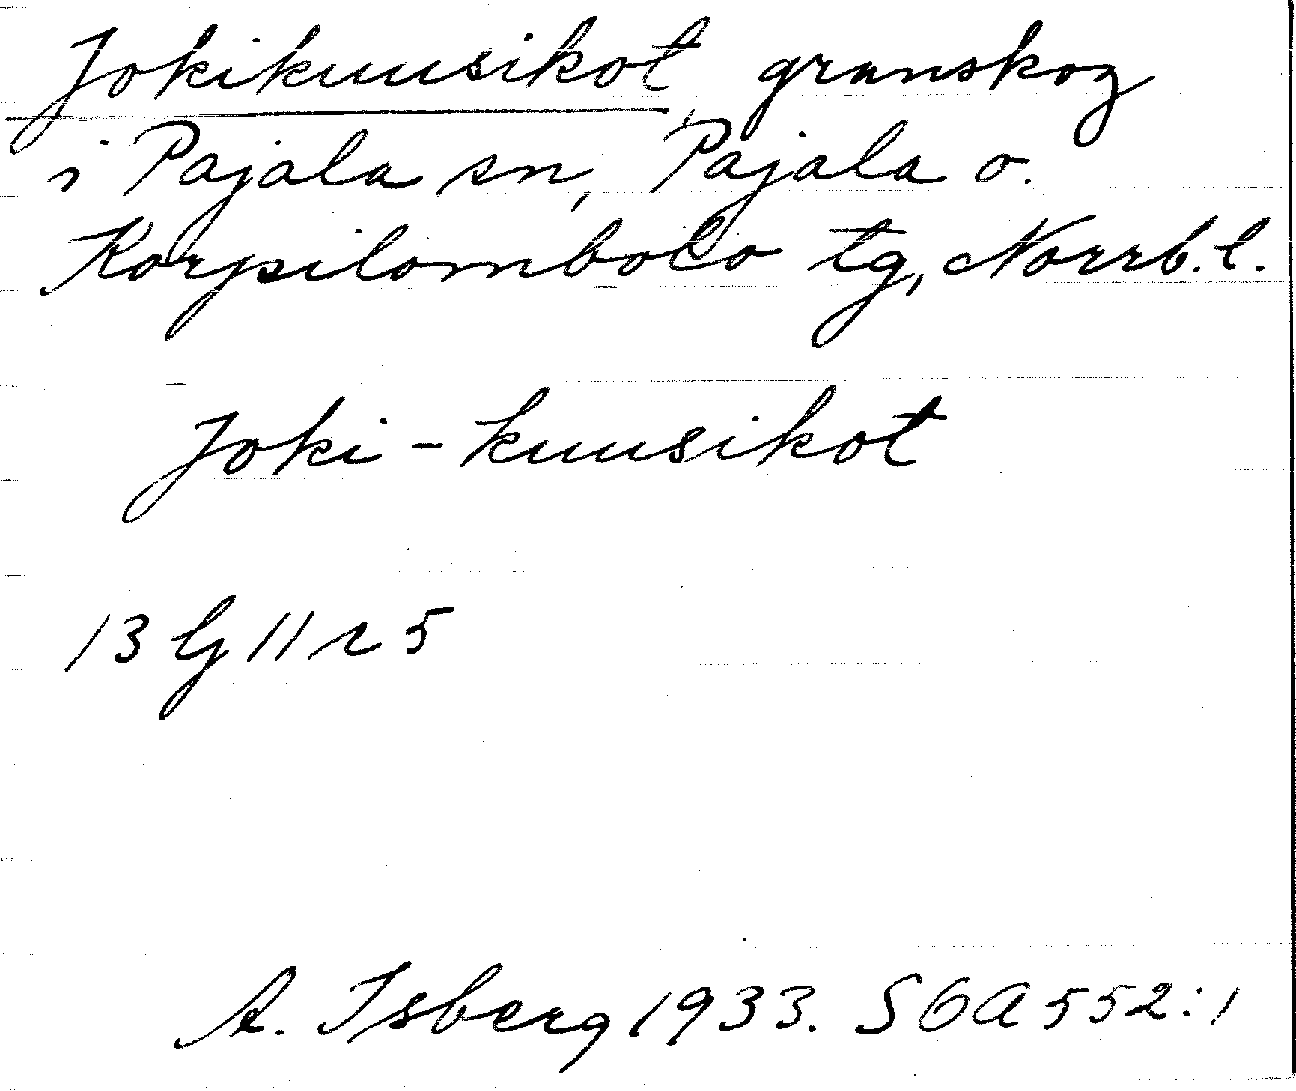 Jokikuusikot, granskog
i Pajala sn, Pajala o.
Korpilombolo tg, Norrb.l.
Joki-kuusikot
13 G 11 r 5
A. Isberg 1933. SOA 552:1